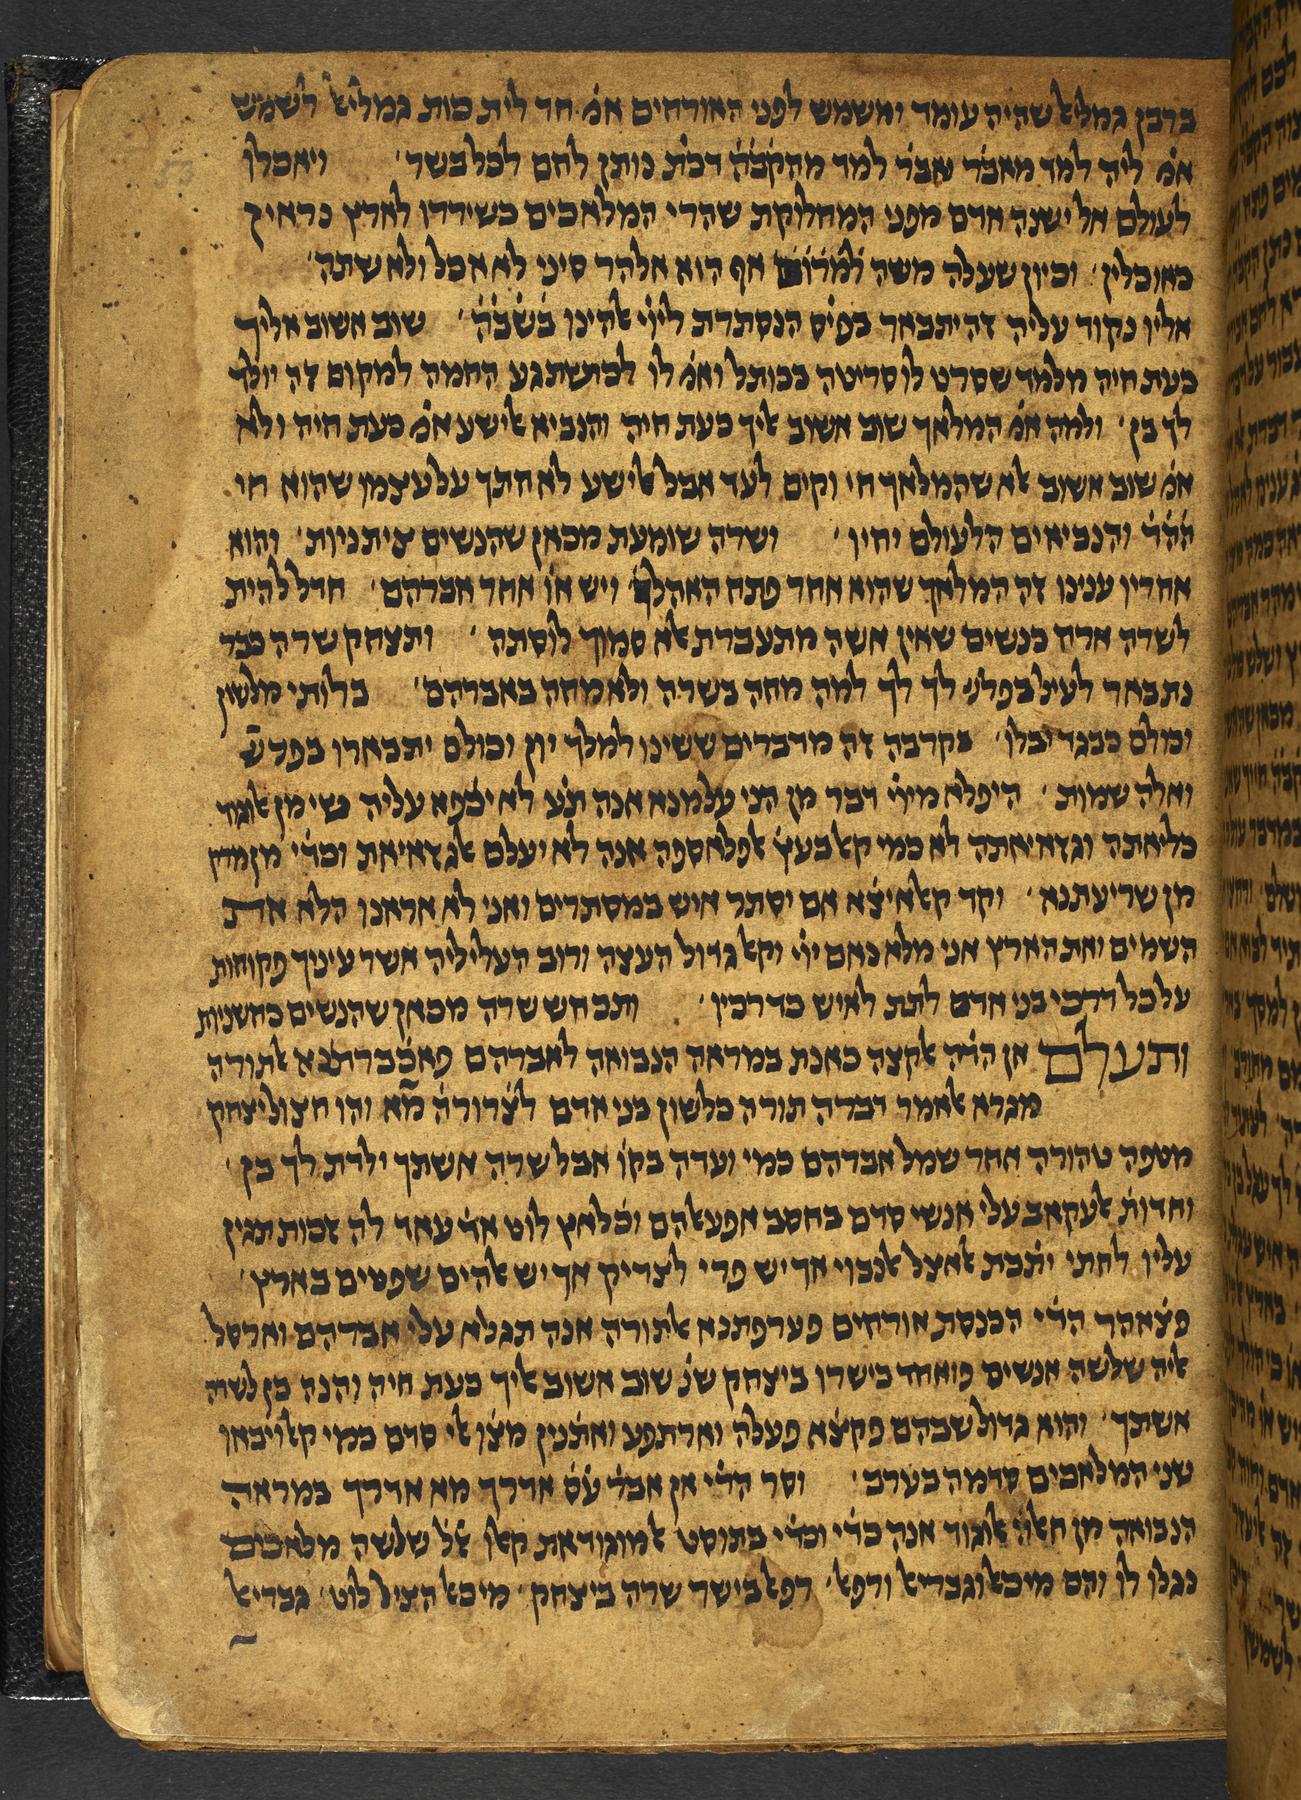 ברבן גמליא שהיה עומד ומשמש לפני האורחים אמ׳ חד לית כות גמליא לשמש
אמ׳ ליה למד מאבר׳ אבר׳ למד מהקבה דכת נותן לחם לכל בשר׳ ויאכלו
לעולם אל ישנה אדם מפני המחלוקת שהרי המלאכים כשירדו לארץ נראין
כאוכלין׳ וכיון שעלה משה למרום אף הוא אלהר סיני לא אכל ולא שתה׳
אליו נקוד עליה זה יתבאר בפיס הנסתרת ליוי אהינו בשבה׳ שוב אשוב אליך
כעת חיה מלמד שסרט לו סריטה בכותל ואמ׳ לו לכשתגע החמה למקום זה יולד
לך בן׳ ולמה אמ׳ המלאך שוב אשוב איך כעת חיה והנביא אישע אמ׳ כעת חיה ולא
אמ׳ שוב אשוב אא שהמלאך חי וקים לעד אבל אישע לא חתך על עצמו שהוא חי
ההד והנביאים הלעולם יחיו׳ ושרה שומעת מכאן שהנשים ציתניות׳ והוא
אחריו ענינו זה המלאך שהוא אחר פתח האהל׳ ויש או׳ אחר אברהם׳ חדל להית
לשרה ארח כנשים שאין אשה מתעברת אא סמוך לוסתה׳ ותצחק שרה כבר
נתבאר לעיל בפלג׳ לך לך למה מחה בשרה ולא מחה באברהם׳ בלותי מלשון
וכולם כבגד יבלו׳ בקרבה זה מדברים ששינו למלך יון וכולם יתבארו בפרש
ואלה שמות׳ היפלא מיוי דבר מן הני עלמנא אנה תע׳ לא יכפא עליה שי מן אוגוד
כליאתה וגזאיאתה לא כמי קאל בעץ אפלאספה אנה לא יעלם אגזאיאת וכרי׳ מן מרק
מן שריעתנא׳ וקד קאל איצא אם יסתר איש במסתרים ואני לא אראנו הלא את
השמים ואת הארץ אני מלא נאם יוי׳ וקאל גדול העצה ורוב העליליה אשר עיניך פקוחות
על כל דרכי בני אדם לתת לאיש כדרכיו׳ ותכחש שרה מכאן שהנשים כחשניות
ותעלם אן הדה אקצה כאנת במראה הנבואה לאברהם פאכברתנא אתורה
מגרא אאמר דברה תורה כלשון בני אדם לצרורה מא והו חצול יצחק
מטפה טהורה אחר שמל אברהם כמי ועדה בקו׳ אבל שרה אשתך ילדת לך בן׳
וחדות אעקאב עלי אנשי סדם בחסב אפעאהם וכלאץ לוט אדי עאד לה זכות תגין
עליו לחתי יתבת אאצל אנבוי אך יש פרי לצדיק אך יש אהים שפטים בארץ׳
פצאהר הדי הכנסת אורחים פערפתנא אתורה אנה תגלא עלי אברהם וארסל
איה שלשה אנשים פואחד בישרו ביצחק שנ׳ שוב אשוב איך כעת חיה והנה בן לשרה
אשתך׳ והוא גדול שבהם פקצא פעלה וארתפע ואתנין מצו אי סדם כמי קאל ויבאו
שני המלאכים סדמה בערב׳ וסר הדי אן אבר׳ עס׳ אדרך מא אדרך במראה
הנבואה מן חאוי אוגוד אנה כרי וכרי בתוסט אמוגודאת קאו אל שלשה מלאכים
נגלו לו והם מיכאל וגבריא ורפא׳ רפא בישר שרה ביצחק׳ מיכא הציל לוט׳ גבריא